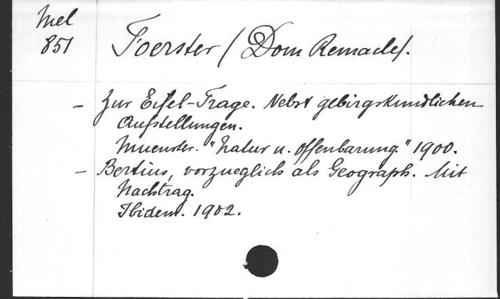 Mel
851
Foerster (Dom Remacle).
- Zur Eifel-Frage. Nebst gebirgskundlichen
Aufstellungen.
Muenster. "Natur u. Offenbarung" 1900.
- Bertius, vorzueglich als Geograph. Mit
Nachtrag.
Ibidem. 1902.